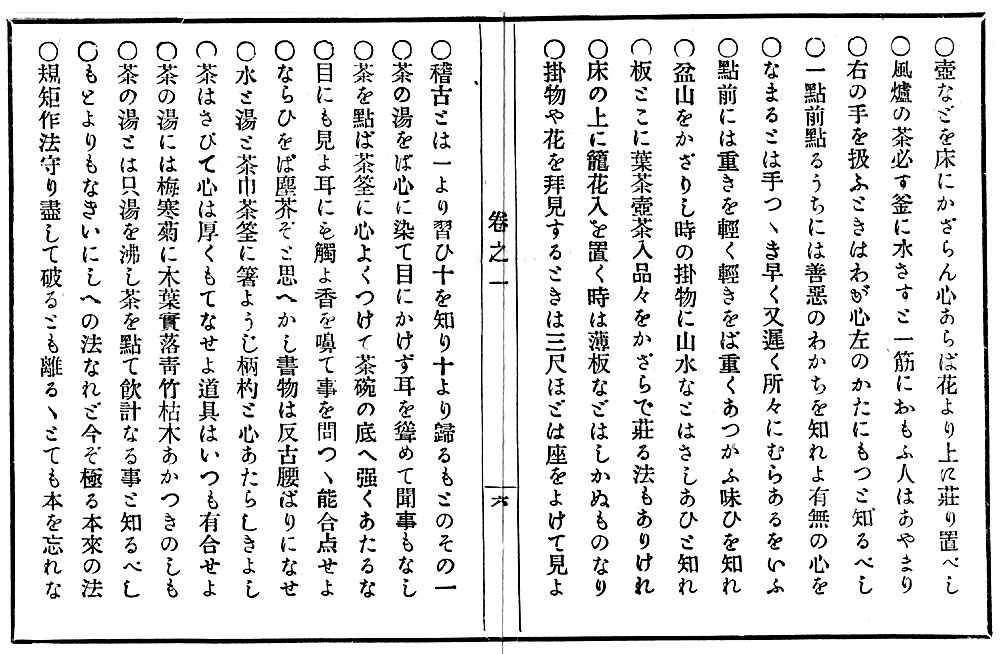 〇壺などを床にかざらん心あらば花より上に莊り置べし
〇風爐の茶必ず釜に水さすと一筋におもふ人はあやまり
〇右の手を扱ふときはわが心左のかたにもつと知るべし
〇一點前點るうちには善惡のわかちを知れよ有無の心を
〇なまるとは手つゝき早く又遲く所々にむらあるをいふ
〇點前には重きを輕く輕きをば重くあつかふ味ひを知れ
〇盆山をかざりし時の掛物に山水などはさしあひと知れ
〇板とこに葉茶壺茶入品々をかざらで莊る法もありけれ
〇床の上に籠花入を置く時は薄板などはしかぬものなり
〇掛物や花を拜見するときは三尺ほどは座をよけて見よ
卷之一
六
〇稽古とは一より習ひ十を知り十より歸るもとのその一
〇茶の湯をば心に染て目にかけず耳を聳めて聞事もなし
〇茶を點ば茶筌に心よくつけて茶碗の底へ强くあたるな
〇目にも見よ耳にも觸よ香を嗅て事を問つゝ能合点せよ
〇ならひをば塵芥ぞと思へかし書物は反古腰ばりになせ
〇水と湯と茶巾茶筌に箸ようじ柄杓と心あたらしきよし
〇茶はさびて心は厚くもてなせよ道具はいつも有合せよ
〇茶の湯には梅寒菊に木葉實落靑竹枯木あかつきのしも
〇茶の湯とは只湯を沸し茶を點て飮計なる事と知るべし
〇もとよりもなきいにしへの法なれど今ぞ極る本來の法
〇規矩作法守り盡して破るとも離るゝとても本を忘れな